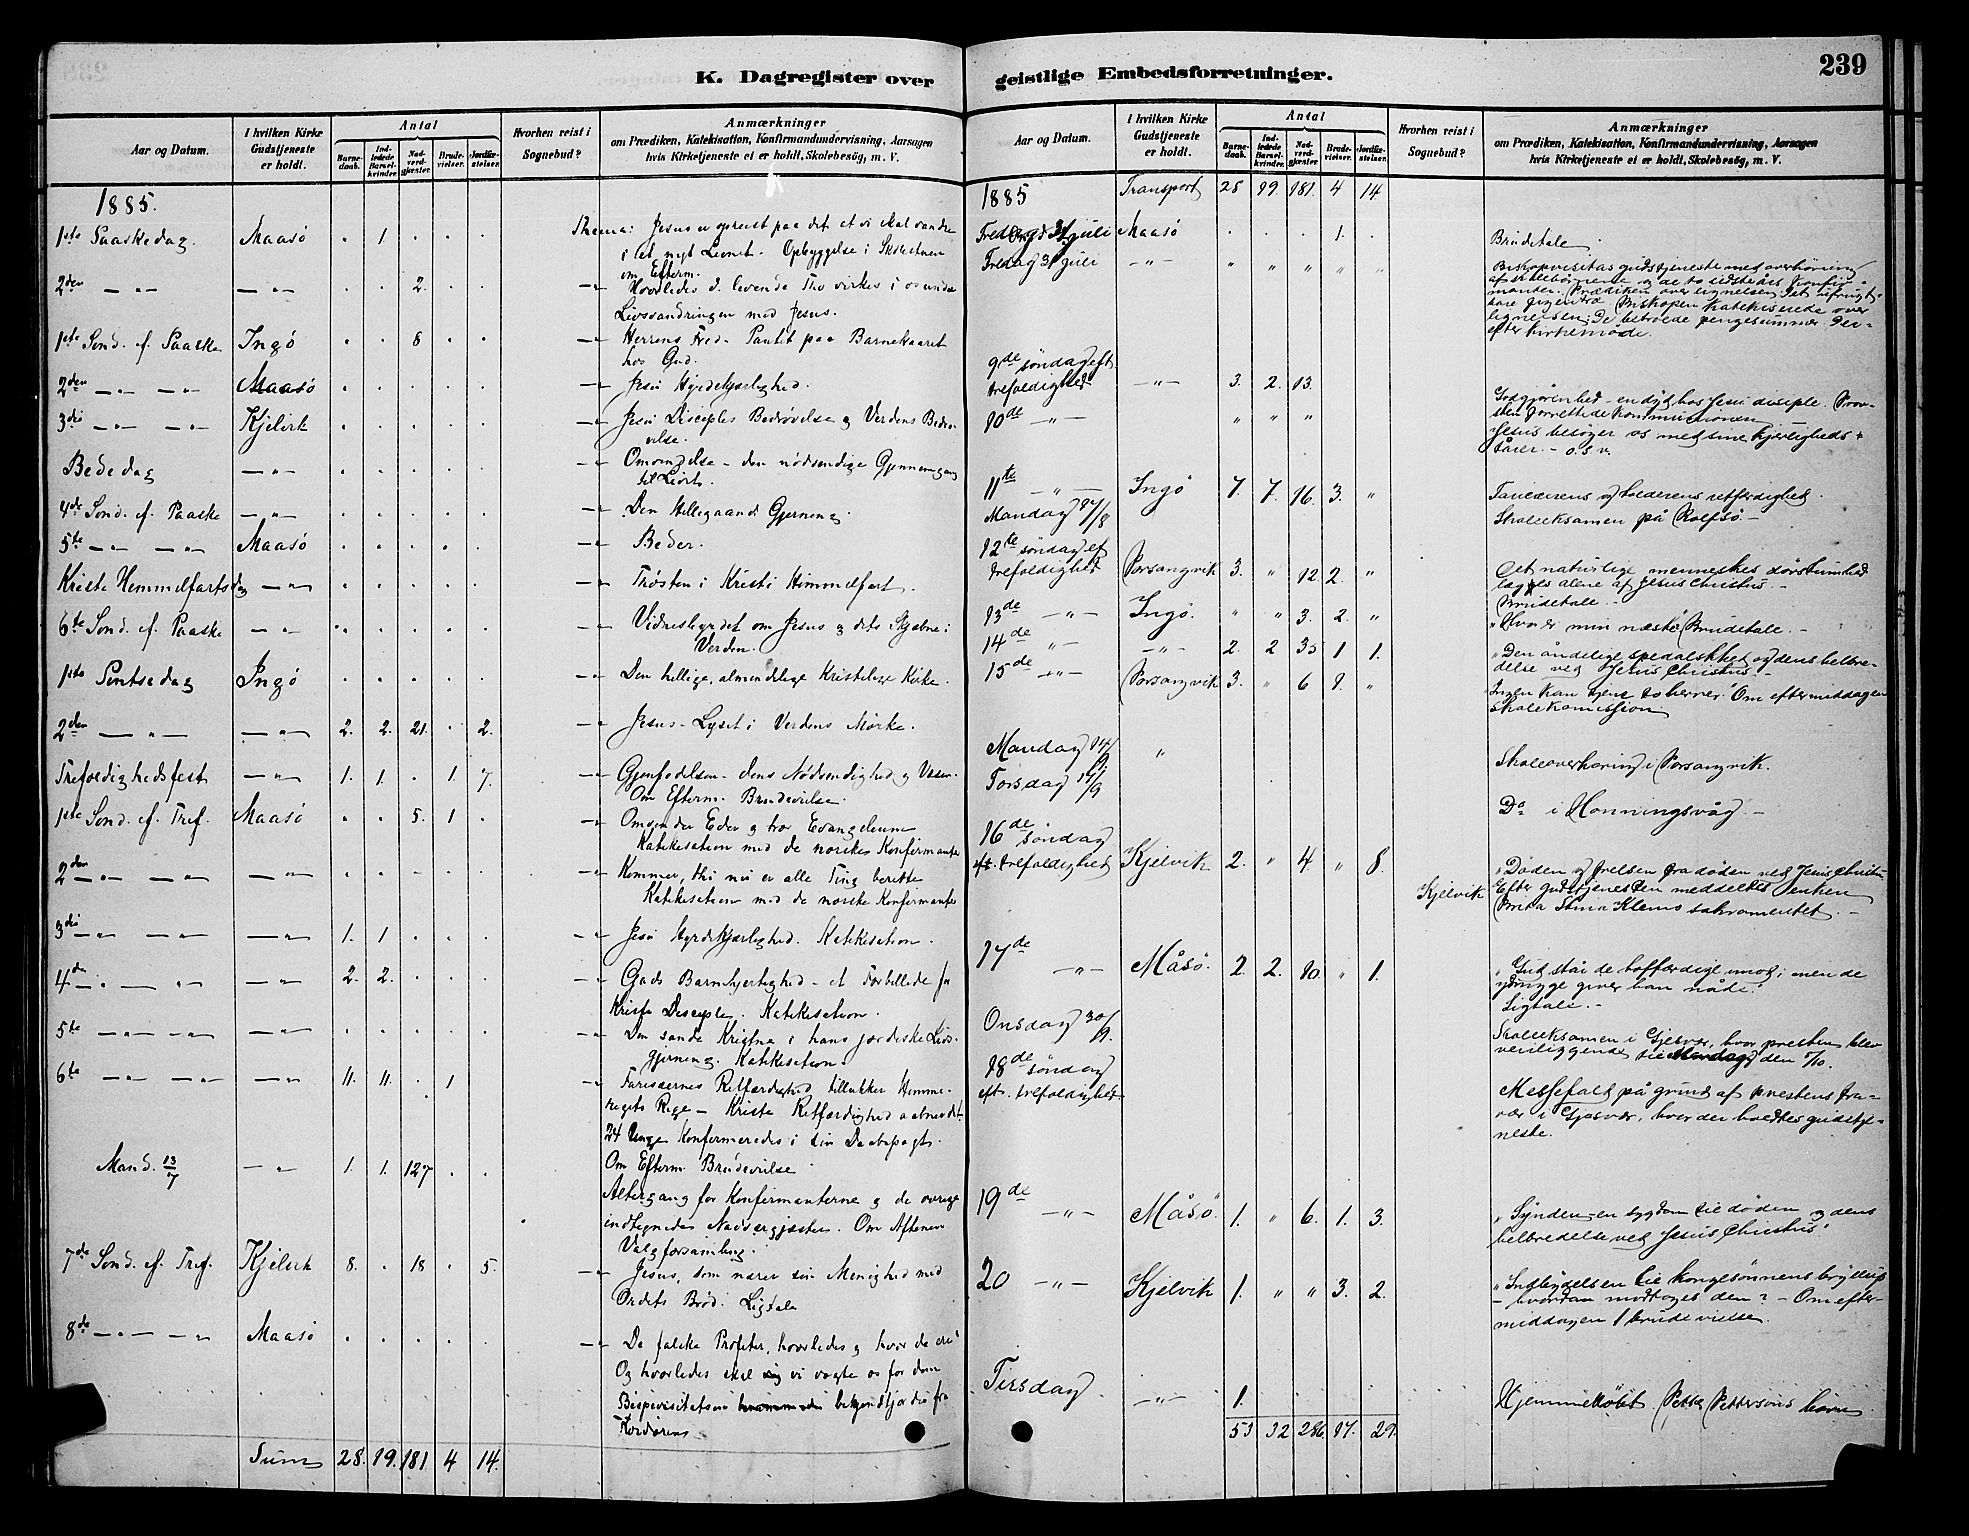 K. Dagregister over
Aar og Datum.
I hvilken Kirke Gudstjeneste er holdt.
Antal
Barnedaab.
Indledede Barselkvinder.
Nadverdgjæster.
Brudevielser.
Jordfæstelser.
Hvorhen reist i Sognebud?
Anmærkninger
om Prædiken, Katekisation, Konfirmandundervisning, Aarsagen
hvis Kirketjeneste ei er holdt, Skolebesög, m. V.
1885.
1ste Paaskedag Maasö . 1 . . . Thema: Jesus er opreist paa det at vi skal vandre
i et nyt Levnet. Opbyggelse i
om Efterm.
2den — " — — " — . . 2. . . — " Hvorledes d. levende Tro virkes i os under
Livsvandringen med Jesus.
1ste Sönd. ef. Paaske Ingö . . 8 . . — " Herrens Fred – Pantet paa Barnekaaret
hos Gud.
2den — " — — " — Maasö . . . . . — " Jesu Hyrdekjærlighed.
3die — " — — " — Kjelvik . . . . . — " Jesu Disciples Bedrøvelse og Verdens Bedrø-
velse.
Bededag — " — . . . . . — " Omvendelse – den nödvendige Gjennemgang
til Livet.
4de Sönd. ef. Paaske — " — . . . . . — " Den Helligaands Gjerning.
5te — " — — " — Maasö . . . . . — " Beder.
Kristi Himmelfartsdag — " — . . . . . — " Trösten i Kristi Himmelfart.
6te Sönd. ef. Paaske — " — . . . . . — " Vidnesbyrdet om Jesus og dets Skjæbne i
Verden.
1ste Pintsedag Ingö . . . . . — " Den hellige, almindelige Kristelige Kirke.
2den — " — — " — 2. 2. 21. . 2. — " Jesus – Lyset i Verdens Mörke.
Trefoldighedsfest — " — 1. 1. . 1 7. — " Gjenfödelsen – dens Nödvendighed og Væsen.
Om Efterm. Brudevielse.
1ste Sönd. ef. Tref. Maasö . . 5. 1 . — " Omvender Eder og tror Evangelium
Katekisation med de norske Konfirmanter
2den — " — — " — — " — . . . . . — " Kommer, thi nu er alle Ting beredte
Katekisation med de norske Konfirmanter
3die — " — — " — — " — 1. 1 . . . — " Jesu Hyrdekjærlighed. Katekisation.
4de — " — — " — — " — 2. 2. . . . — " Guds Barmhjertighed – et Forbillede for
Kristi Disciple. Katekisation.
5te — " — — " — — " — . . . . . — " Den sande Kristne i hans jordiske Livs-
gjerning. Katekisation.
6te — " — — " — — " — 11. 11. . 1 — " Farisæernes Retfærdighed tillukker Himme-
rigets Rige – Kristi Retfærdighed aabner det.
24 Unge Konfirmeredes i sin Daabspagt.
Om Efterm. Brudevielse
Mand. 13/7 — " — 1. 1. 127 . .
Altergang for Konfirmanterne og de övrige
indtegnede Nadvergjæster. Om Aftenen
Valgforsamling.
7de Sönd. ef. Tref. Kjelvik 8. . 18 . 5. — " Jesus, som nærer sin Menighed med
Ordets Bröd. Ligtale
8de — " — — " — Maasö . . . . . — " De falske Profeter, hvorledes og hvor de ere
Og hvorledes skal vi vogte os for dem
Bispevisitatsen bekjendtgjördes fra
Kordören
Sum 28. 19. 181 4 14.
geistlige Embedsforretninger.
239
Aar og Datum.
I hvilken Kirke Gudstjeneste er holdt.
Antal
Barnedaab.
Indledede Barselkvinder.
Nadverdgjæster.
Brudevielser.
Jordfæstelser.
Hvorhen reist i Sognebud?
Anmærkninger
om Prædiken, Katekisation, Konfirmandundervisning, Aarsagen
hvis Kirketjeneste ei er holdt, Skolebesög, m. V.
1885 Transport 28 19 181. 4 14
juli Maasö . . . 1. . Brudetale.
Fredag 31 juli — " — " " " " " Bispevisitas gudstjeneste med overhöring
af skolebörnene og de to sidste års konfir-
manter. Prædiken over lignelsen: Det ufrugt-
bare figentræ. Biskopen katekiserede over
lignelsen: De betroede pengesummer. Der-
efter kirkemöde.
9de söndag eft.
trefoldighed — " — 3. 2. 13. Godgjörenhed – en dyd hos Jesu disciple. Prov-
sten forrettede kommunionen
10de — " — " " " Jesus besöger os med sine kjærligheds-
tårer. – o.s.v.
11te — " — Ingö 7. 7. 16. 3. " Farisæerens og tolderens retfærdighed.
Mandag 17/8 Skoleeksamen på Rolfsö. –
12te söndag ef
trefoldighed Porsangvik 3. " 12 2. " Det naturlige menneskes dövstumhed
læges alene af Jesus Christus –
Brudetale. –
13de — " — Ingö. " " 3. 2. " "Hvo er min næste" Brudetale. –
14de — " — — " — 2. 2 35 1 1. "Den åndelige spedalskhed og dens helbre-
delse ved Jesus Christus –
15de — " — Porsangvik 3. " 6 1. " Ingen kan tjene to herrer." Om eftermiddagen
skolekomission.
Mandag 14/9. " Skoleoverhöring i Porsangvik.
Torsdag 17/9 Do i Honningsvåg. –
16de söndag
eft. trefoldighed Kjelvik 2. " 4. " 8. "Döden og frelsen fra döden ved Jesus Christus
Kjelvik Efter gudstjenesten meddeltes enken
Brita Stina Klemo sakramentet. –
17de — " — Måsö. 2. 2. 10. " 1. "Gud står de hoffærdige imod; men de
ydmyge giver han nåde."
Ligtale. –
Onsdag 30/9. Skoleeksamen i Gjesvær, hvor presten blev
veirliggende til Mandag den 5/10.
18de söndag
eft. trefoldighed Messefald på grund af prestens fra-
vær i Gjesvær, hvor der holdtes gudstje-
neste.
19de — " — Måsö. 1. " 6. 1. 3. "Synden – en sygdom til döden og dens
helbredelse ved Jesus Christus."
20 — " — Kjelvik 1. " " 3. 2. "Indbydelsen til kongesönnens bryllup
– hvordan modtages den? – Om efter-
middagen 1 brudevielse.
Tirsdag. — " — 1. Hjemmedöbt Petter Pettersens barn
53 32 286. 17. 29.